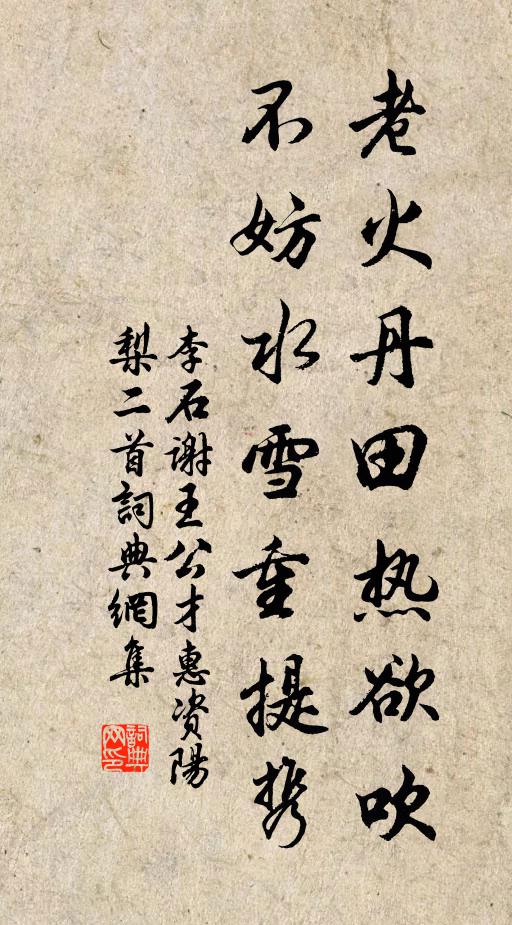 老火丹田热欲吹
不妨水雪重提携
李石谢王公才惠资阳
梨二首詞典網集
詞典网印